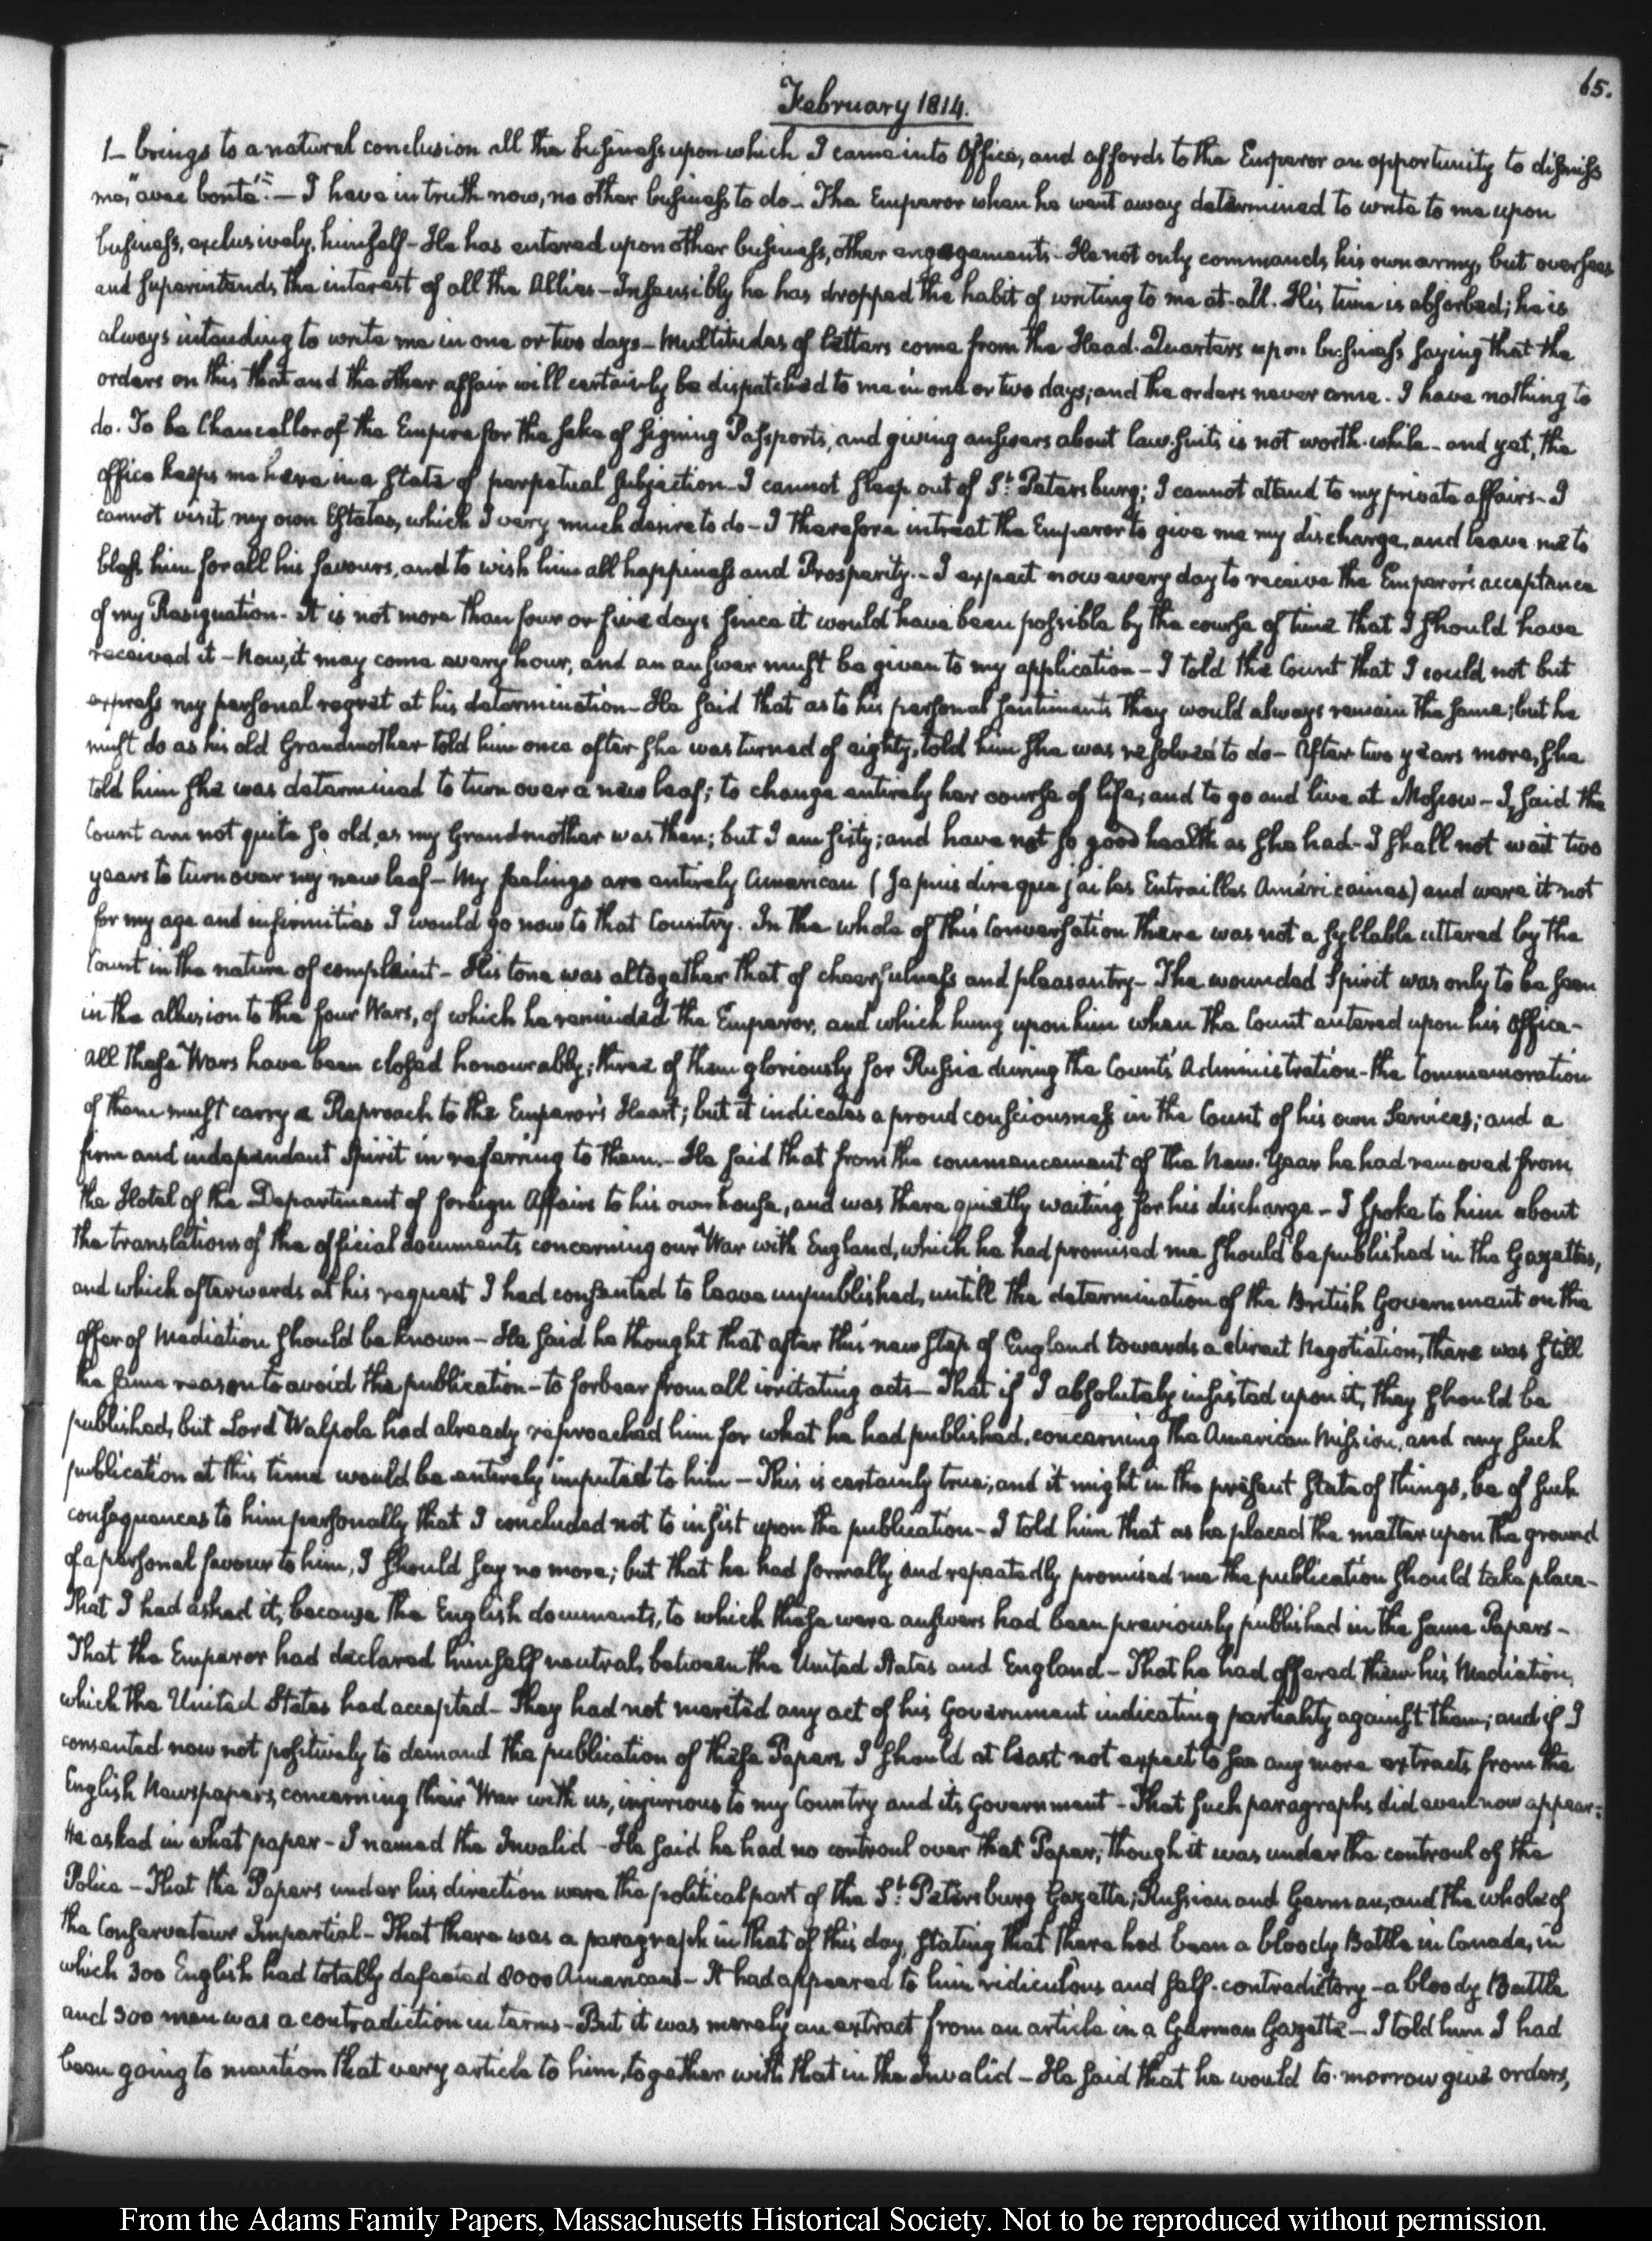 65.
February 1814.
1— brings to a natural conclusion all the business upon which I came into Office, and affords to the Emperor an opportunity to dismiss
me, "avec bonté".— I have in truth now, no other business to do— The Emperor when he went away determined to write to me upon
business, exclusively, himself— He has entered upon other business, other engagements— He not only commands, his own army, but oversees
and superintends, the interest of all the Allies— Insensibly he has dropped the habit of writing to me at-all. His time is absorbed; he is
always intending to write me in one or two days— Multitudes of letters come from the Head-Quarters upon business saying that the
orders on this that and the other affair will certainly be dispatched to me in one or two days; and the orders never come. I have nothing to
do. To be Chancellor of the Empire for the sake of signing Passports, and giving answers about law-suits, is not worth-while— and yet, the
office keeps me here in a State of perpetual subjection— I cannot sleep out of St. Petersburg; I cannot attend to my private affairs— I
cannot visit my own Estates, which I very much desire to do— I therefore intreat the Emperor to give me my discharge, and leave me to
bless him for all his favours, and to wish him all happiness and Prosperity.— I expect now every day to receive the Emperor's acceptance
of my Resignation— It is not more than four or five days since it would have been possible by the course of time that I should have
received it— Now, it may come every hour, and an answer must be given to my application— I told the Count that I could not but
express my personal regret at his determination— He said that as to his personal sentiments they would always remain the same; but he
must do as his old Grandmother told him once after she was turned of eighty, told him she was resolved to do— After two years more, she
told him she was determined to turn over a new leaf; to change entirely her course of life; and to go and live at Moscow— I, said the
Count am not quite so old, as my Grandmother was then; but I am sixty; and have not so good health as she had— I shall not wait two
years to turn over my new leaf— My feelings are entirely American (Je puis dire que j'ai les Entrailles Américaines) and were it not
for my age and infirmities I would go now to that Country. In the whole of this Conversation there was not a syllable uttered by the
Count in the nature of complaint— His tone was altogether that of cheerfulness and pleasantry— The wounded Spirit was only to be seen
in the allusion to the four Wars, of which he reminded the Emperor, and which hung upon him when the Count entered upon his Office—
All these Wars have been closed honourably; three of them gloriously for Russia during the Count's Administration— the Commemoration
of them must carry a Reproach to the Emperor's Heart; but it indicates a proud consciousness in the Count of his own Services; and a
firm and independent Spirit in referring to them.— He said that from the commencement of the New-Year he had removed from
the Hotel of the Department of foreign Affairs to his own house, and was there quietly waiting for his discharge— I spoke to him about
the translations of the official documents concerning our War with England, which he had promised me should be published in the Gazettes,
and which afterwards at his request I had consented to leave unpublished, untill the determination of the British Government on the
offer of Mediation should be known— He said he thought that after this new step of England towards a direct Negotiation, there was still
the same reason to avoid the publication— to forbear from all irritating acts— That if I absolutely insisted upon it, they should be
published, but Lord Walpole had already reproached him for what he had published, concerning the American Mission, and any such
publication at this time would be entirely imputed to him— This is certainly true; and it might in the present State of things, be of such
consequences to him personally that I concluded not to insist upon the publication— I told him that as he placed the matter upon the ground
of a personal favour to him, I should say no more; but that he had formally and repeatedly promised me the publication should take place—
That I had asked it, because the English documents, to which these were answers had been previously published in the same Papers—
That the Emperor had declared himself neutral, between the United States and England— That he had offered them his Mediation,
which the United States had accepted— They had not merited any act of his Government indicating partiality against them; and if I
consented now not positively to demand the publication of these Papers I should at least not expect to see any more extracts from the
English Newspapers, concerning their War with us, injurious to my Country and its Government— That such paragraphs did even now appear.
He asked in what paper— I named the Invalid— He said he had no controul over that Paper; though it was under the controul of the
Police— That the Papers under his direction were the political part of the St. Petersburg Gazette, Russian and German; and the whole of
the Conservateur Impartial— That there was a paragraph in that of this day, stating that there had been a bloody Battle in Canada, in
which 300 English had totally defeated 8000 Americans— It had appeared to him ridiculous and self-contradictory— a bloody Battle
and 300 men was a contradiction in terms— But it was merely an extract from an article in a German Gazette— I told him I had
been going to mention that very article to him, together with that in the Invalid— He said that he would to-morrow give orders,
From the Adams Family Papers, Massachusetts Historical Society. Not to be reproduced without permission.